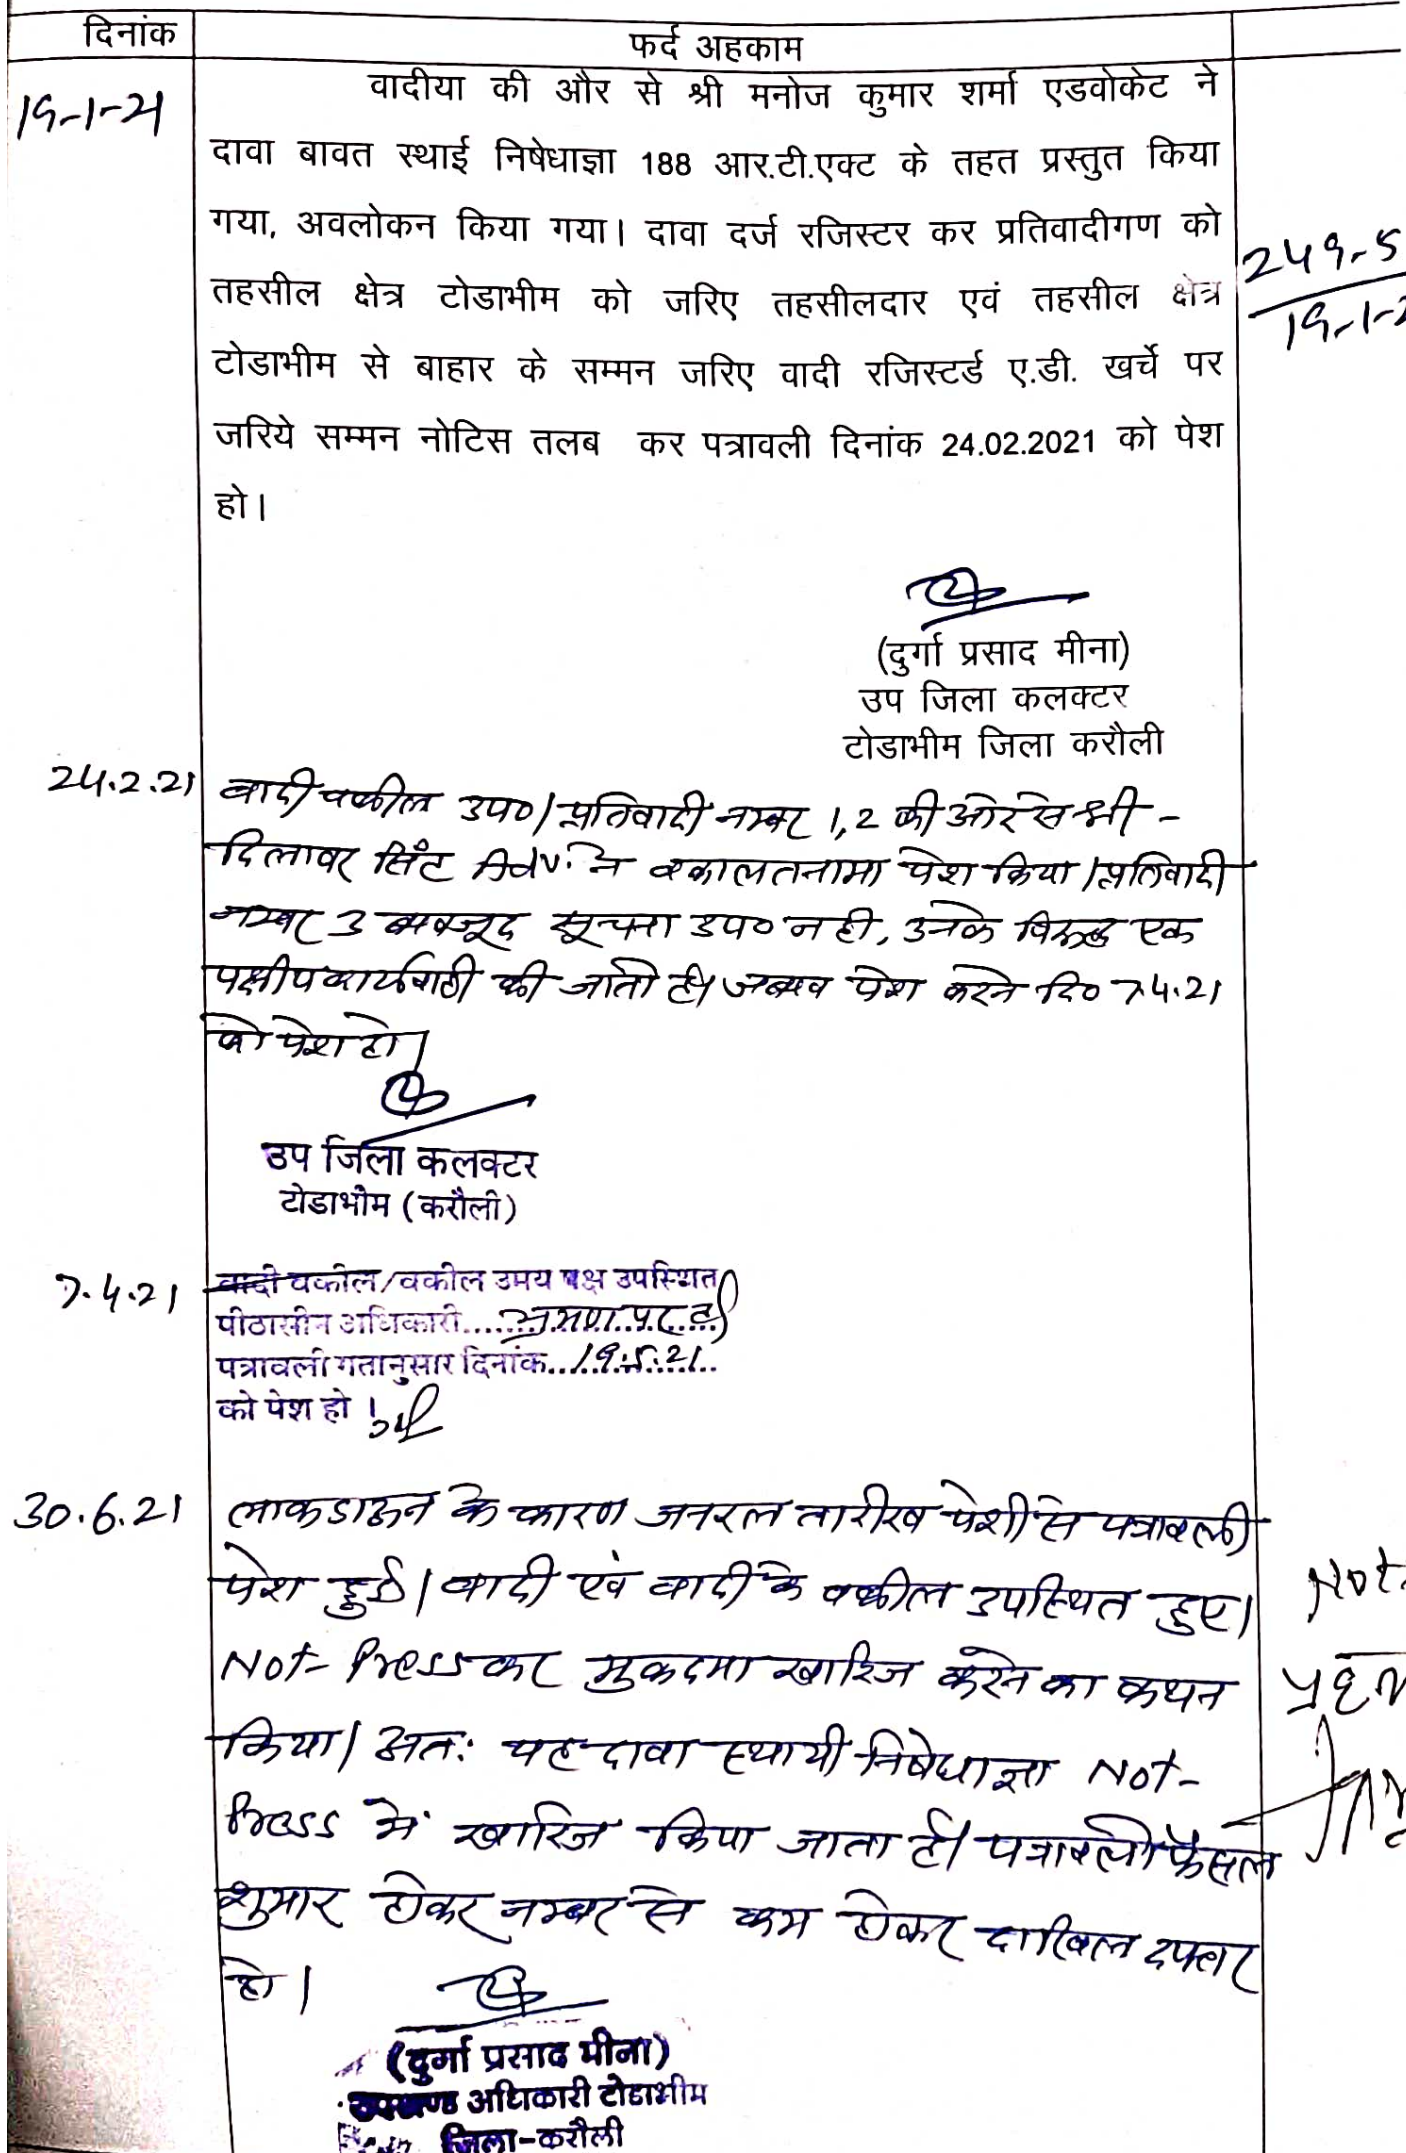 दिनांक
फर्द अहकाम
19-1-21
वादीया की और से श्री मनोज कुमार शर्मा एडवोकेट ने
दावा बावत स्थाई निषेधाज्ञा 188 आर.टी.एक्ट के तहत प्रस्तुत किया
गया, अवलोकन किया गया। दावा दर्ज रजिस्टर कर प्रतिवादीगण को
तहसील क्षेत्र टोडाभीम को जरिए तहसीलदार एवं तहसील क्षेत्र
टोडाभीम से बाहार के सम्मन जरिए वादी रजिस्टर्ड ए.डी. खर्चे पर
जरिये सम्मन नोटिस तलब कर पत्रावली दिनांक 24.02.2021 को पेश
हो।
249-5
19-1-2
(दुर्गा प्रसाद मीना)
उप जिला कलक्टर
टोडाभीम जिला करौली
24.2.21
वादी वकील उप०/प्रतिवादी नम्बर 1,2 की ओर से श्री -
दिलावर सिंह Adv. ने वकालतनामा पेश किया।प्रतिवादी
नम्बर 3 बावजूद सूचना उप० नही, उनके विरूद्ध एक
पक्षीय कार्यवाही की जाती है। जबाव पेश करने दि० 7.4.21
को पेश हो।
उप जिला कलक्टर
टोडाभीम (करौली)
7.4.21
वादी वकील/वकील उभय पक्ष उपस्थित
पीठासीन अधिकारी.....भ्रमण पर है
पत्रावली गतानुसार दिनांक...19.5.21..
को पेश हो।
30.6.21
लाकडाऊन के कारण जनरल तारीख पेशी से पत्रावली
पेश हुई। वादी एवं वादी के वकील उपस्थित हुए।
Not-Press कर मुकदमा खारिज करने का कथन
किया। अतः यह दावा स्थायी निषेधाज्ञा Not-
Press में खारिज किया जाता है। पत्रावली फैसल
शुमार होकर नम्बर से कम होकर दाखिल दफ्तर
हो।
Not
(दुर्गा प्रसाद मीना)
उपखण्ड अधिकारी टोडाभीम
जिला-करौली